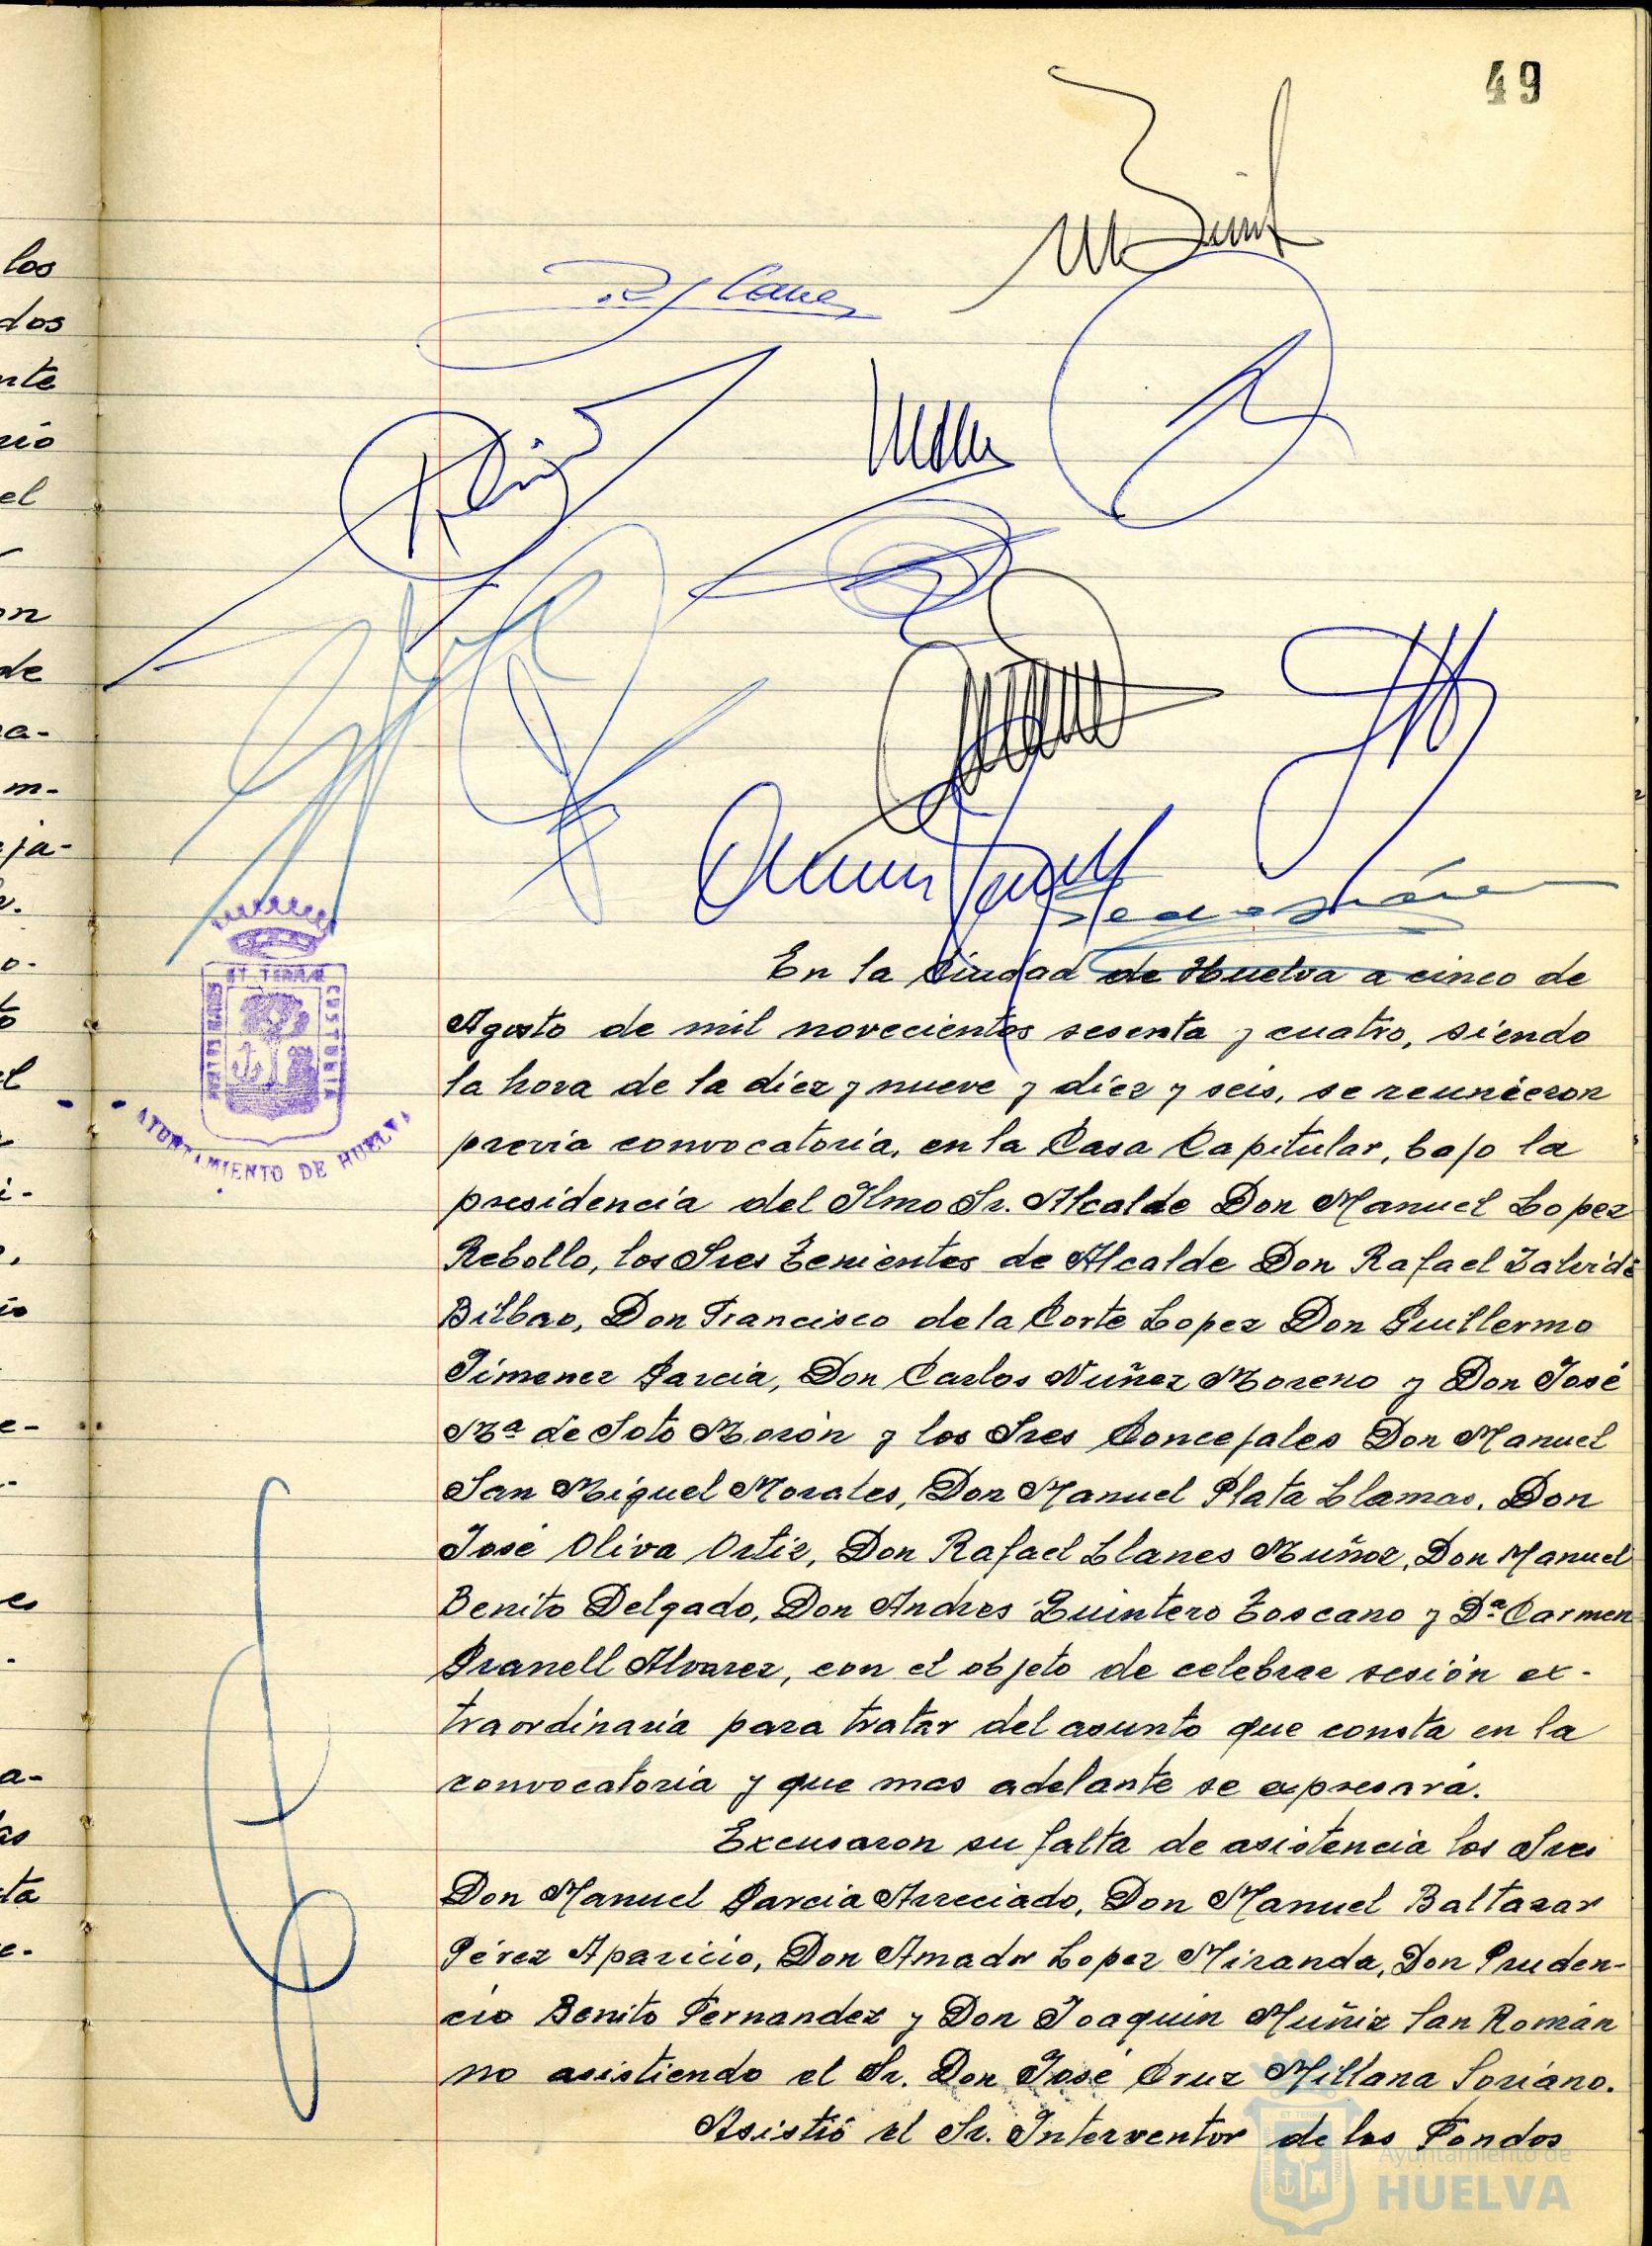 49
los
dos
nte
rio
el
on
de
a-
m-
eja-
o-
el
i-
e-
es
a-
as
ta
e-
ET TERRAE CUSTODIA
AYUNTAMIENTO DE HUELVA
En la Ciudad de Huelva a cinco de
Agosto de mil novecientos sesenta y cuatro, siendo
la hora de la diez y nueve y diez y seis, se reunieron
previa convocatoria, en la Casa Capitular, bajo la
presidencia del Ilmo Sr. Alcalde Don Manuel Lopez
Rebollo, los Sres Tenientes de Alcalde Don Rafael
Bilbao, Don Francisco de la Corte Lopez Don Guillermo
Jimenez Garcia, Don Carlos Nuñez Moreno y Don José
Mª de Soto Morón y los Sres Concejales Don Manuel
San Miguel Morales, Don Manuel Plata Llamas, Don
José Oliva Ortiz, Don Rafael Llanes Muñoz, Don Manuel
Benito Delgado, Don Andres Quintero Toscano y Dª Carmen
Granell Alvarez, con el objeto de celebrar sesión ex-
traordinaria para tratar del asunto que consta en la
convocatoria y que mas adelante se expresará.
Excusaron su falta de asistencia los Sres
Don Manuel Garcia Arreciado, Don Manuel Baltasar
Pérez Aparicio, Don Amador Lopez Miranda, Don Pruden-
cio Benito Fernandez y Don Joaquin Muñiz San Román
no asistiendo el Sr. Don José Cruz Millana Soriano.
Asistió el Sr. Interventor de los Fondos
Ayuntamiento de
HUELVA